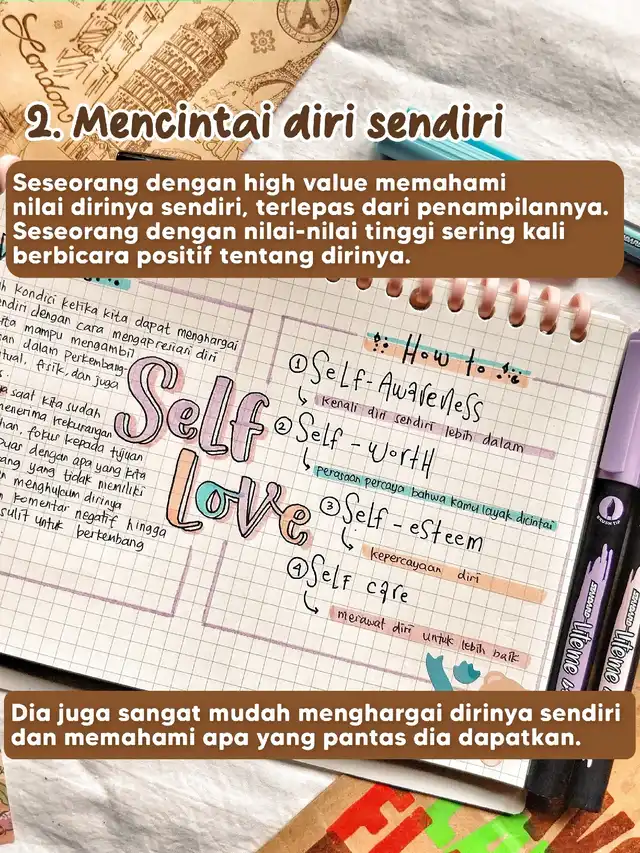 London
2. Mencintai diri sendiri
Seseorang dengan high value memahami
nilai dirinya sendiri, terlepas dari penampilannya.
Seseorang dengan nilai-nilai tinggi sering kali
berbicara positif tentang dirinya.
kondisi ketika kita dapat menghargai
diri dengan cara mengapresiasi diri
mampu mengambil
dalam Perkembang-
fisik, dan juga
saat kita sudah
menerima kekurangan
fokus kepada tujuan
dengan apa yang kita
yang tidak memiliki
menghukum dirinya
komentar negatif hingga
sulit untuk berkembang
Self
Love
How to
① Self-Awareness
kenali diri sendiri lebih dalam
② Self-worth
perasaan percaya bahwa kamu layak dicintai
③ Self-esteem
kepercayaan diri
④ Self care
merawat diri untuk lebih baik
BRUSH TIP
Dia juga sangat mudah menghargai dirinya sendiri
dan memahami apa yang pantas dia dapatkan.